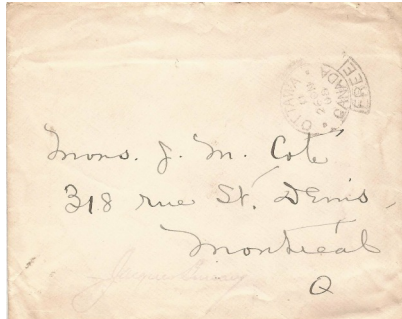 OTTAWA CANADA
FREE
Mons. J. M. Coté
318 rue St. Denis,
Montréal
Q